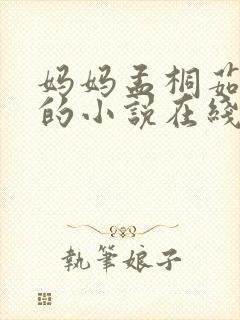 妈妈孟桐茹
的小說在綫
執筆娘子